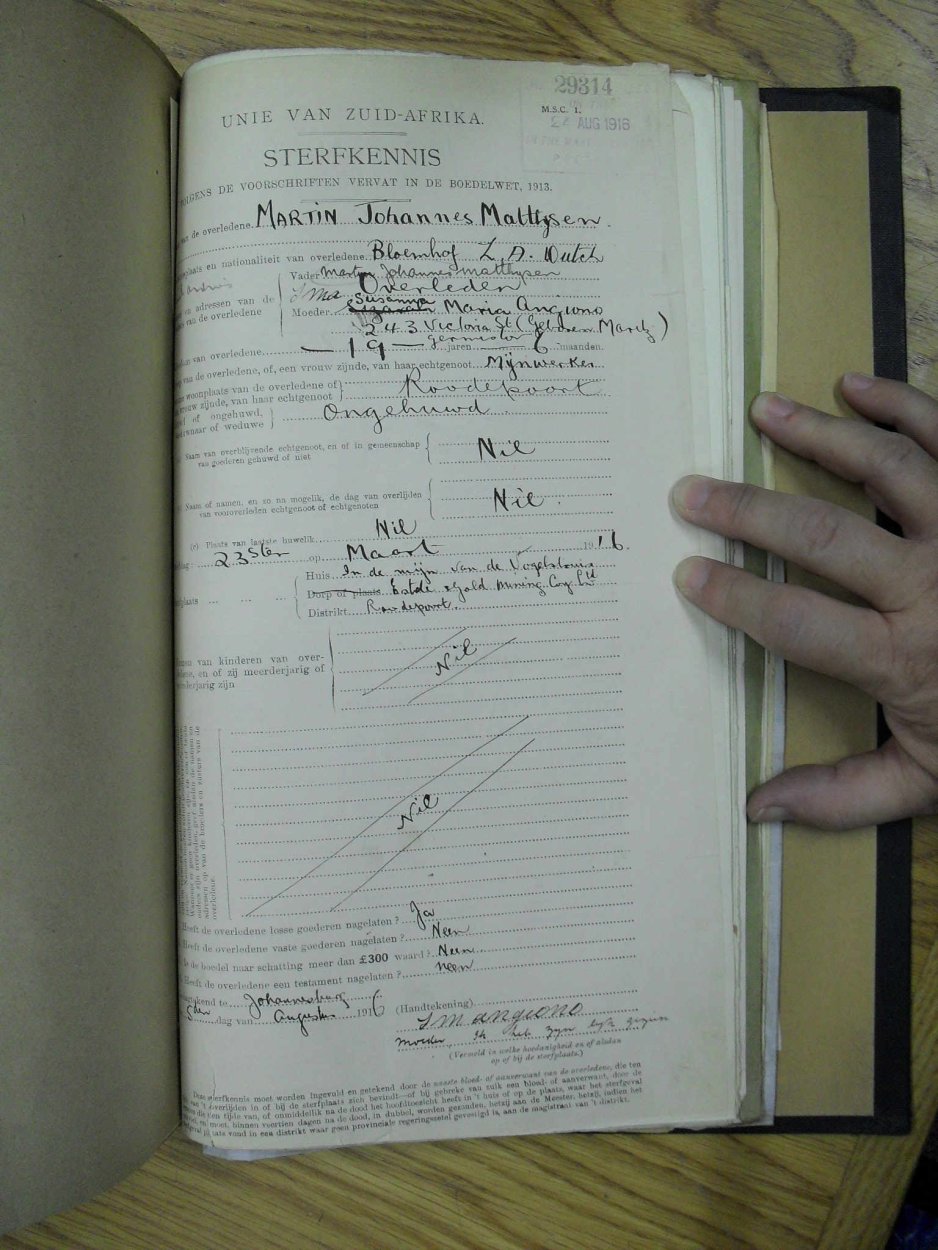 29314
M.S.C. 1.
24 AUG 1916
UNIE VAN ZUID-AFRIKA.
STERFKENNIS
VOLGENS DE VOORSCHRIFTEN VERVAT IN DE BOEDELWET, 1913.
van de overledene MARTIN Johannes Matthysen.
plaats en nationaliteit van overledene Bloemhof Z. A. Dutch
Vader Martin Johannes Matthysen
en adressen van de Overleden
van de overledene
Moeder Susanna Maria Angiono
243 Victoria St (Geboren Maritz)
germiston
van overledene — 19 — jaren — 6 maanden.
van de overledene, of, een vrouw zijnde, van haar echtgenoot Mijnwerker
woonplaats van de overledene of Roodepoort
vrouw zijnde, van haar echtgenoot
of ongehuwd, Ongehuwd
of weduwe
Naam van overblijvende echtgenoot, en of in gemeenschap Nil
van goederen gehuwd of niet
Naam of namen, en zo na mogelik, de dag van overlijden Nil
van vooroverleden echtgenoot of echtgenoten
(c) Plaats van laatste huwelik Nil
23ster op Maart 1916.
Huis In de mijn van de Vogelstruis
plaats ... ... ... Dorp of plaats Estate & Gold Mining Coy Ltd
Distrikt Roodepoort.
van kinderen van over-
ledene, en of zij meerderjarig of Nil
minderjarig zijn
Nil
Heeft de overledene losse goederen nagelaten? Ja
Heeft de overledene vaste goederen nagelaten? Neen
Is de boedel naar schatting meer dan £300 waard? Neen
Heeft de overledene een testament nagelaten? Neen
te Johannesburg
5den dag van Augustus 1916 (Handtekening) S M angiono
Moeder Ik heb zyn lyk gezien
(Vermeld in welke hoedanigheid en of aldan
op of bij de sterfplaats.)
Deze sterfkennis moet worden ingevuld en getekend door de naaste bloed- of aanverwant van de overledene, die ten
van 't overlijden in of bij de sterfplaats zich bevindt—of bij gebreke van zulk een bloed- of aanverwant, door de
die ten tijde van, of onmiddellik na de dood het hoofdtoezicht heeft in 't huis of op de plaats, waar het sterfgeval
en moet, binnen veertien dagen na de dood, in dubbel, worden gezonden, hetzij aan de Meester, hetzij, indien het
geval plaats vond in een distrikt waar geen provinciale regeringszetel gevestigd is, aan de magistraat van 't distrikt.